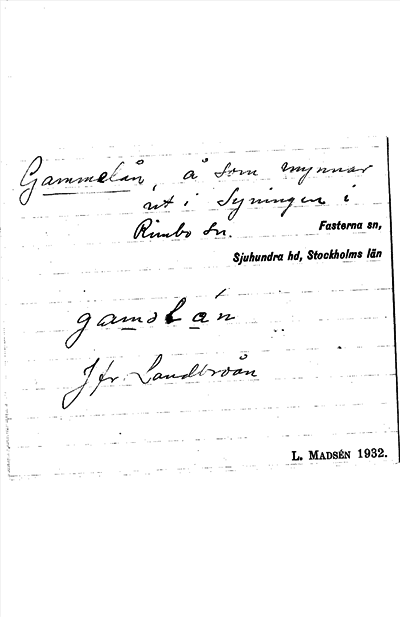 Gammelån, å som mynnar
ut i Syningen i
Rimbo sn.
Fasterna sn,
Sjuhundra hd, Stockholms län
gaməlán
Jfr. Landbroån
L. Madsén 1932.